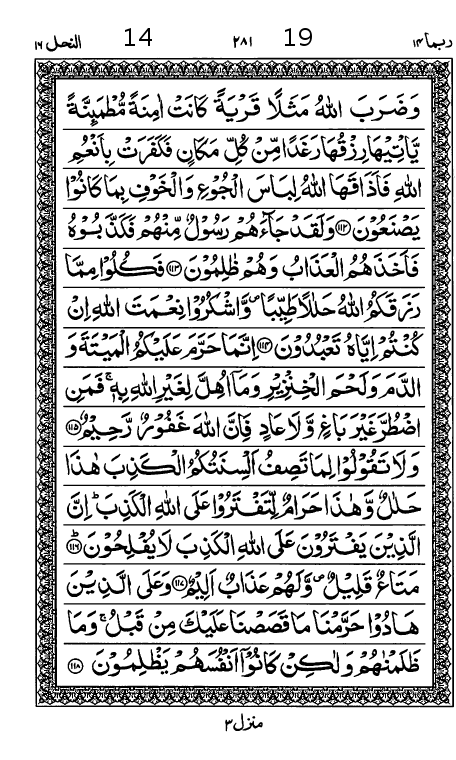 ربما ١٤ 19 ٢٨١ 14 النحل ١٦
وَضَرَبَ اللّٰهُ مَثَلًا قَرْيَةً كَانَتْ اٰمِنَةً مُّطْمَئِنَّةً
يَّاْتِيْهَا رِزْقُهَا رَغَدًا مِّنْ كُلِّ مَكَانٍ فَكَفَرَتْ بِاَنْعُمِ
اللّٰهِ فَاَذَاقَهَا اللّٰهُ لِبَاسَ الْجُوْعِ وَالْخَوْفِ بِمَا كَانُوْا
يَصْنَعُوْنَ ﴿۱۱۲﴾ وَلَقَدْ جَآءَهُمْ رَسُوْلٌ مِّنْهُمْ فَكَذَّبُوْهُ
فَاَخَذَهُمُ الْعَذَابُ وَهُمْ ظٰلِمُوْنَ ﴿۱۱۳﴾ فَكُلُوْا مِمَّا
رَزَقَكُمُ اللّٰهُ حَلٰلًا طَيِّبًا ۪ وَّاشْكُرُوْا نِعْمَتَ اللّٰهِ اِنْ
كُنْتُمْ اِيَّاهُ تَعْبُدُوْنَ ﴿۱۱۴﴾ اِنَّمَا حَرَّمَ عَلَيْكُمُ الْمَيْتَةَ وَ
الدَّمَ وَلَحْمَ الْخِنْزِيْرِ وَمَاۤ اُهِلَّ لِغَيْرِ اللّٰهِ بِهٖ ۚ فَمَنِ
اضْطُرَّ غَيْرَ بَاغٍ وَّلَا عَادٍ فَاِنَّ اللّٰهَ غَفُوْرٌ رَّحِيْمٌ ﴿۱۱۵﴾
وَلَا تَقُوْلُوْا لِمَا تَصِفُ اَلْسِنَتُكُمُ الْكَذِبَ هٰذَا
حَلٰلٌ وَّهٰذَا حَرَامٌ لِّتَفْتَرُوْا عَلَى اللّٰهِ الْكَذِبَ ؕ اِنَّ
الَّذِيْنَ يَفْتَرُوْنَ عَلَى اللّٰهِ الْكَذِبَ لَا يُفْلِحُوْنَ ﴿۱۱۶﴾ؕ
مَتَاعٌ قَلِيْلٌ ۪ وَّلَهُمْ عَذَابٌ اَلِيْمٌ ﴿۱۱۷﴾ وَعَلَى الَّذِيْنَ
هَادُوْا حَرَّمْنَا مَا قَصَصْنَا عَلَيْكَ مِنْ قَبْلُ ۚ وَمَا
ظَلَمْنٰهُمْ وَلٰكِنْ كَانُوْۤا اَنْفُسَهُمْ يَظْلِمُوْنَ ﴿۱۱۸﴾
منزل ٣